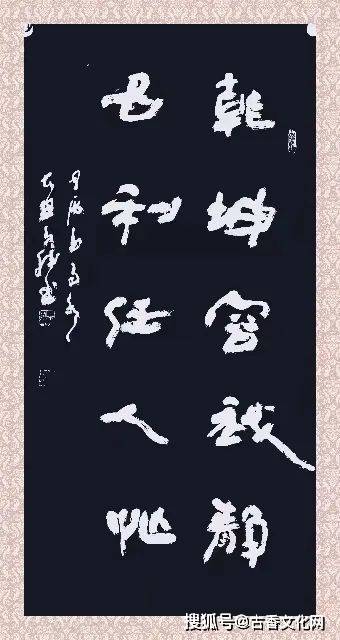 乾坤容我静
名利任人忙
搜狐号@古香文化网